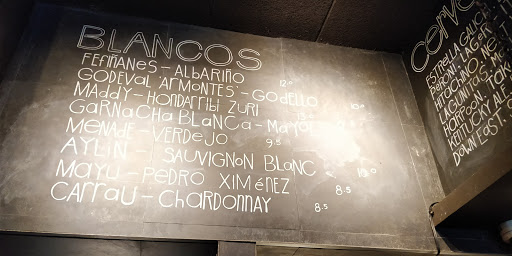 BLANCOS
FEFIÑANES - ALBARIÑO 12.0
GODEVAL "ARMONTES" - GODELLO
MADDY - HONDARRIBI ZURI
GARNACHA BLANCA -
MENADE - VERDEJO 9.5
AYLIN - SAUVIGNON BLANC
MAYU - PEDRO XIMÉNEZ 8.5
CARRAU - CHARDONNAY 8.5
CERVE
ESTRELLA GALIC
PERONI, LAGER
HITACHINO, NE
LAGUNITAS,
HARPOON,
KENTUCKY ALE
DOWN EAST,